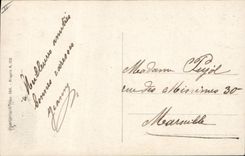 Meilleures amitiés
bonnes caresses
Jeanne
Madame Pujol
rue des Minimes 30
Marseille